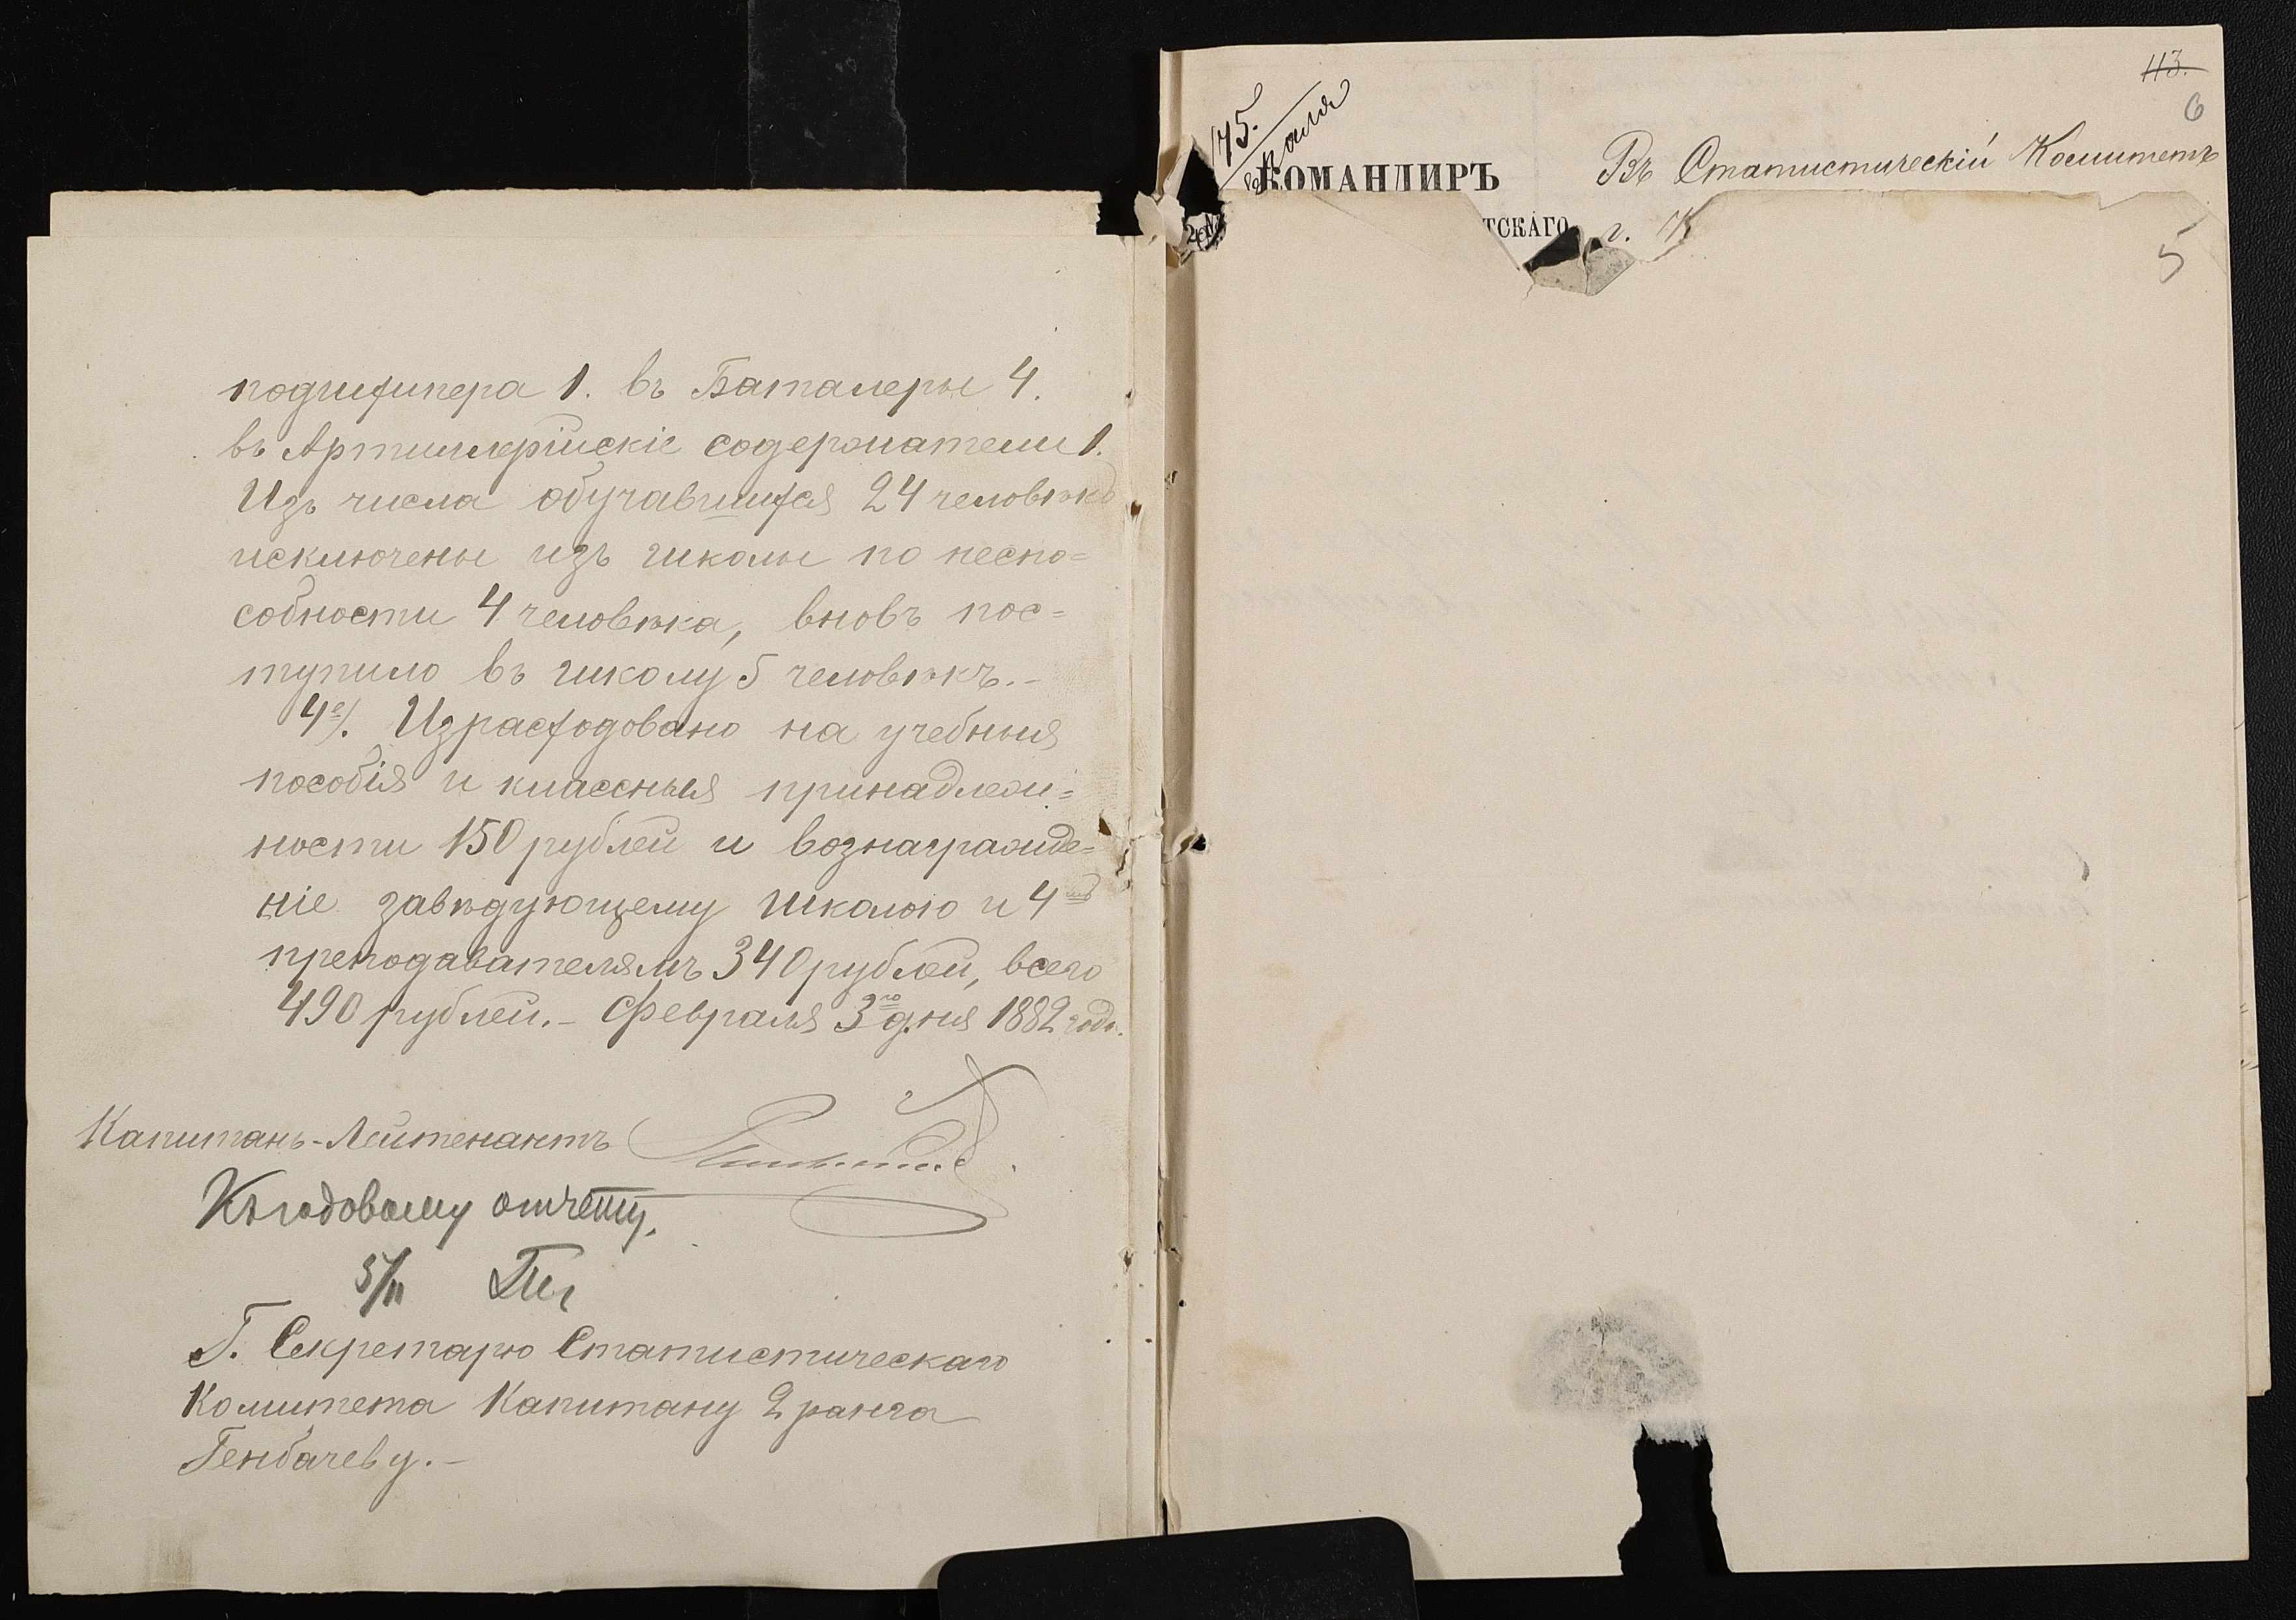 подшкипера 1. въ Баталеры 4.
въ Артиллерійскіе содержатели 1.
Изъ числа обучавшихся 24 человѣкъ
исключены изъ школы по неспо=
собности 4 человѣка, вновь пос=
тупило въ школу 5 человѣкъ.-
4е/. Израсходовано на учебныя
пособія и классныя принадлеж=
ности 150 рублей и вознагражде=
ніе завѣдующему школою и 4мъ
преподавателямъ 340 рублей, всего
490 рублей.- Февраля 3го дня 1882 года.
Капитанъ-Лейтенантъ
Къ годовому отчету.
5/II
Г. Секретарю Статистическаго
Комитета Капитану 2 ранга
Генбачеву.-
113.
6
175.
КОМАНДИРЪ
Въ Статистическій Комитетъ
ТСКАГО
г. К
5